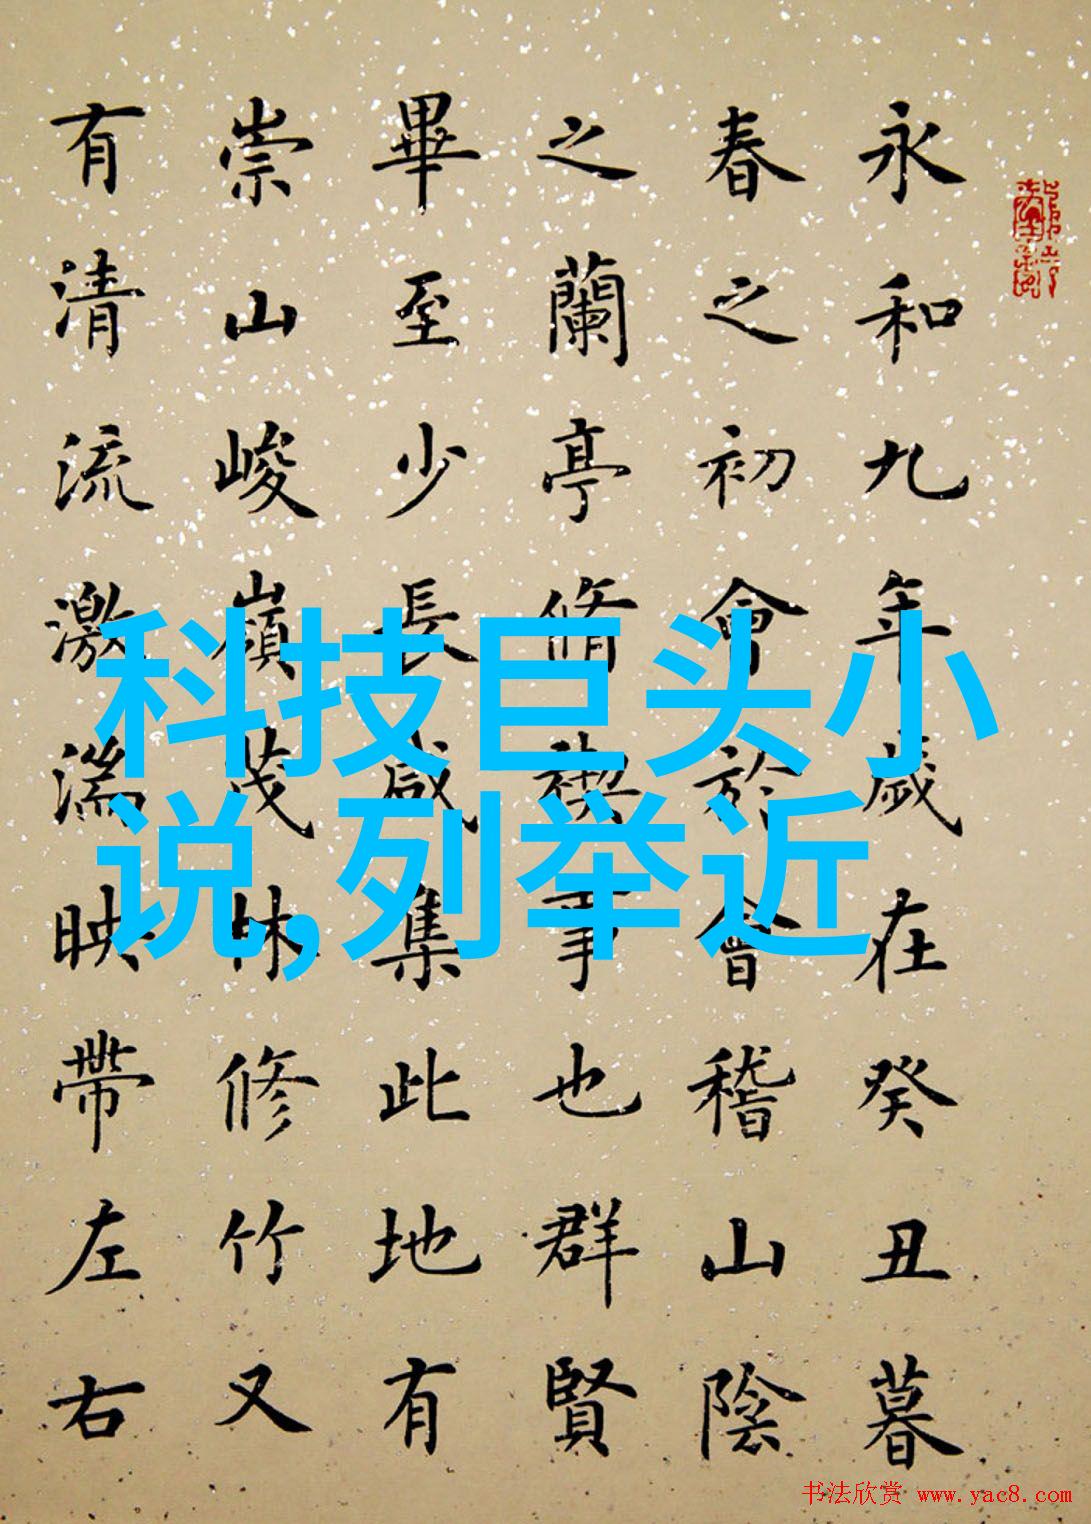 永和九年歲在癸丑暮
春之初會於會稽山陰
之蘭亭脩禊事也群賢
畢至少長咸集此地有
崇山峻嶺茂林修竹又
有清流激湍映帶左右
科技巨头小
说,列举近
书法欣赏 www.yac8.com